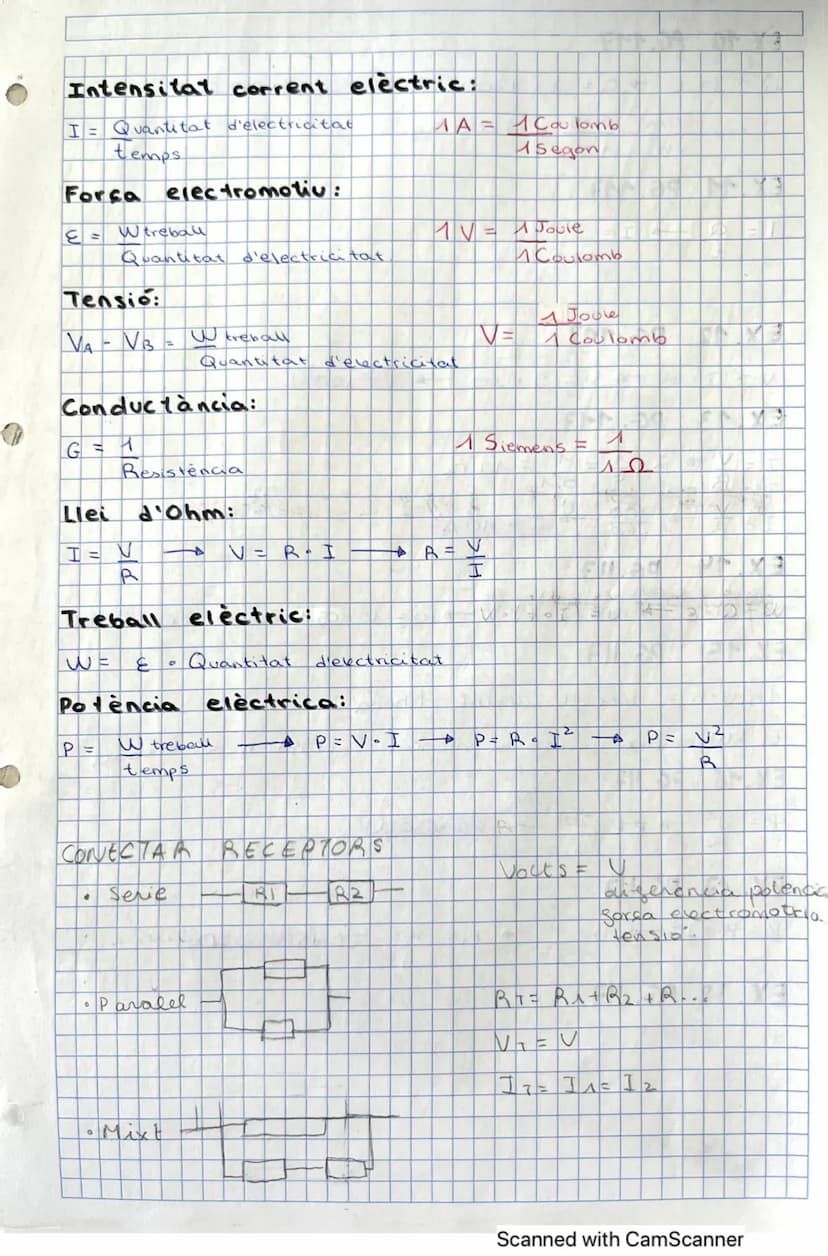 Intensitat corrent elèctric:
I = Quantitat d'electricitat / temps
1 A = 1 Coulomb / 1 Segon
Força electromotiu:
ε = W treball / Quantitat d'electricitat
1 V = 1 Joule / 1 Coulomb
Tensió:
VA - VB = W treball / Quantitat d'electricitat
V = 1 Joule / 1 Coulomb
Conductància:
G = 1 / Resistència
1 Siemens = 1 / 1 Ω
Llei d'Ohm:
I = V / R → V = R · I → R = V / I
Treball elèctric:
W = ε · Quantitat d'electricitat
Potència elèctrica:
P = W treball / temps → P = V · I → P = R · I² → P = V² / R
CONECTAR RECEPTORS
· Serie R1 R2
Volts = V
diferència potència
força electromotria
tensió
· Paralel
RT = R1 + R2 + R...
VT = V
IT = I1 = I2
· Mixt
Scanned with CamScanner